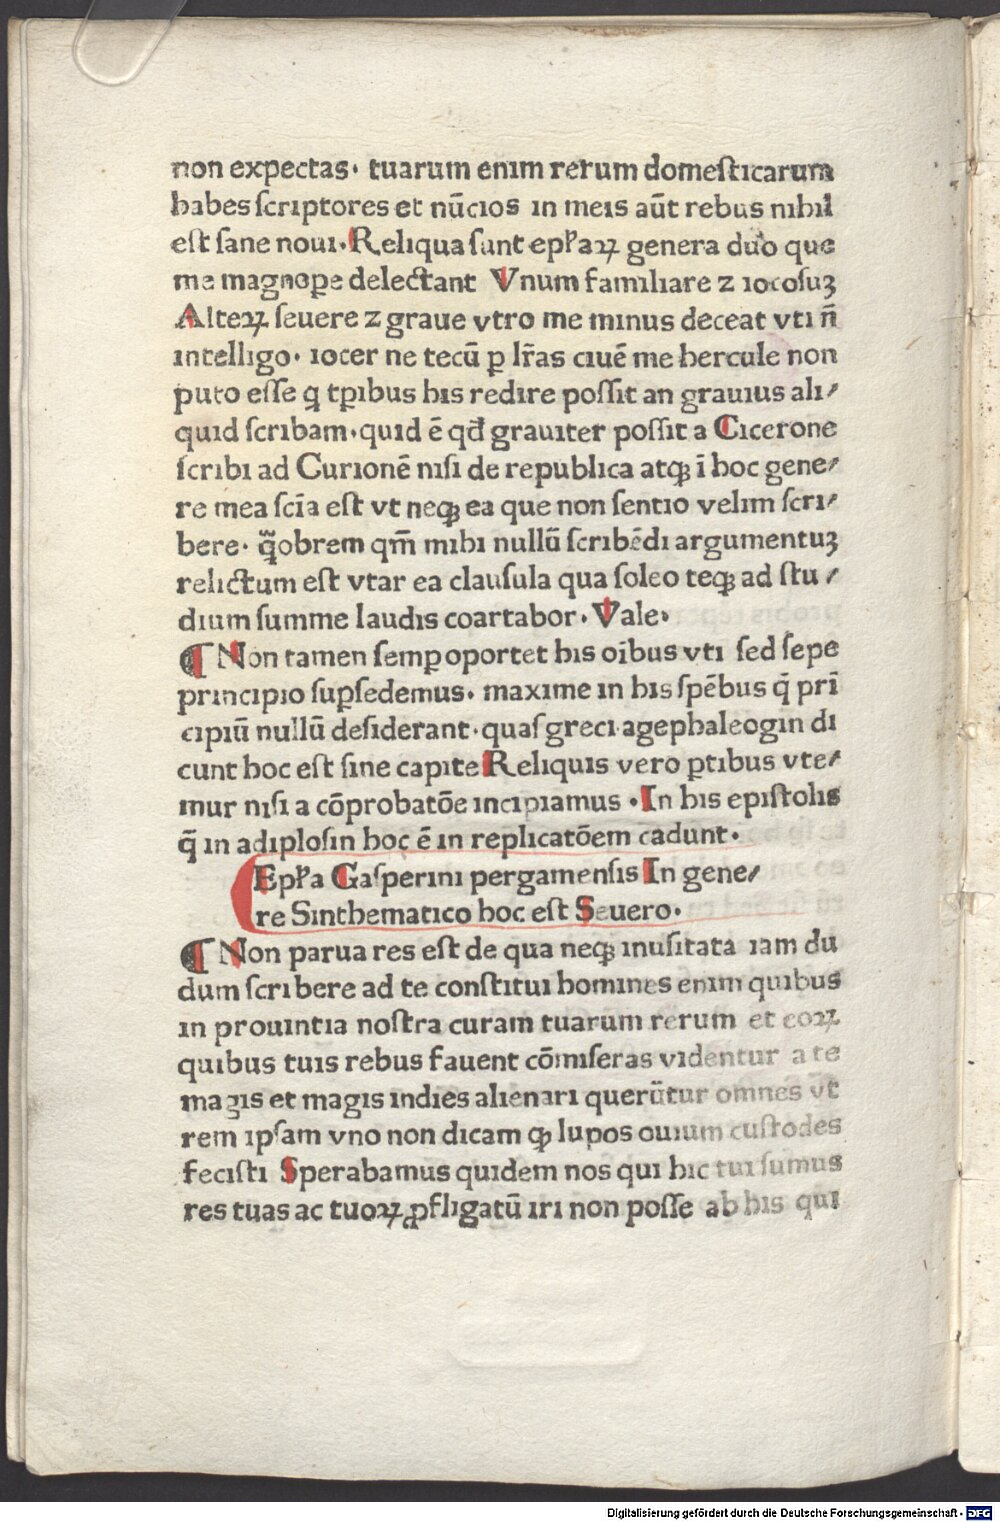 non expectas· tuarum enim rerum domesticarum
habes scriptores et nūcios in meis aūt rebus nihil
est sane noui· Reliqua sunt epl̄aꝝ genera duo que
me magnoꝑe delectant Vnum familiare ⁊ iocosuꝫ
Alteꝝ seuere ⁊ graue vtro me minus deceat vti n̄
intelligo· iocer ne tecū ꝑ lr̄as ciuē me hercule non
puto esse q̨ tꝑibus his redire possit an grauius ali⸗
quid scribam· quid ē qd̄ grauiter possit a Cicerone
scribi ad Curionē nisi de republica atqꝫ ī hoc gene⸗
re mea scīa est vt neqꝫ ea que non sentio velim scri⸗
bere· q̄obrem qm̄ mihi nullū scribēdi argumentuꝫ
relictum est vtar ea clausula qua soleo teqꝫ ad stu⸗
dium summe laudis coartabor· Vale·
¶ Non tamen semꝑ oportet his oībus vti sed sepe
principio suꝑsedemus· maxime in his spēbus q̄ pri̅
cipiū nullū desiderant· quas greci agephaleogin di
cunt hoc est sine capite Reliquis vero ꝑtibus vte⸗
mur nisi a cōprobatōe incipiamus · In his epistolis
q̄ in adiplosin hoc ē in replicatōem cadunt·
Epl̄a Gasperini pergamensis In gene⸗
re Sinthematico hoc est Seuero·
¶ Non parua res est de qua neqꝫ inusitata iam du
dum scribere ad te constitui homines enim quibus
in prouintia nostra curam tuarum rerum et eoꝝ
quibus tuis rebus fauent cōmiseras videntur a te
magis et magis indies alienari querūtur omnes vt
rem ipsam vno non dicam qꝫ lupos ouium custodes
fecisti Sperabamus quidem nos qui hic tui sumus
res tuas ac tuoꝝ ꝓfligatū iri non posse ab his qui
Digitalisierung gefördert durch die Deutsche Forschungsgemeinschaft - DFG